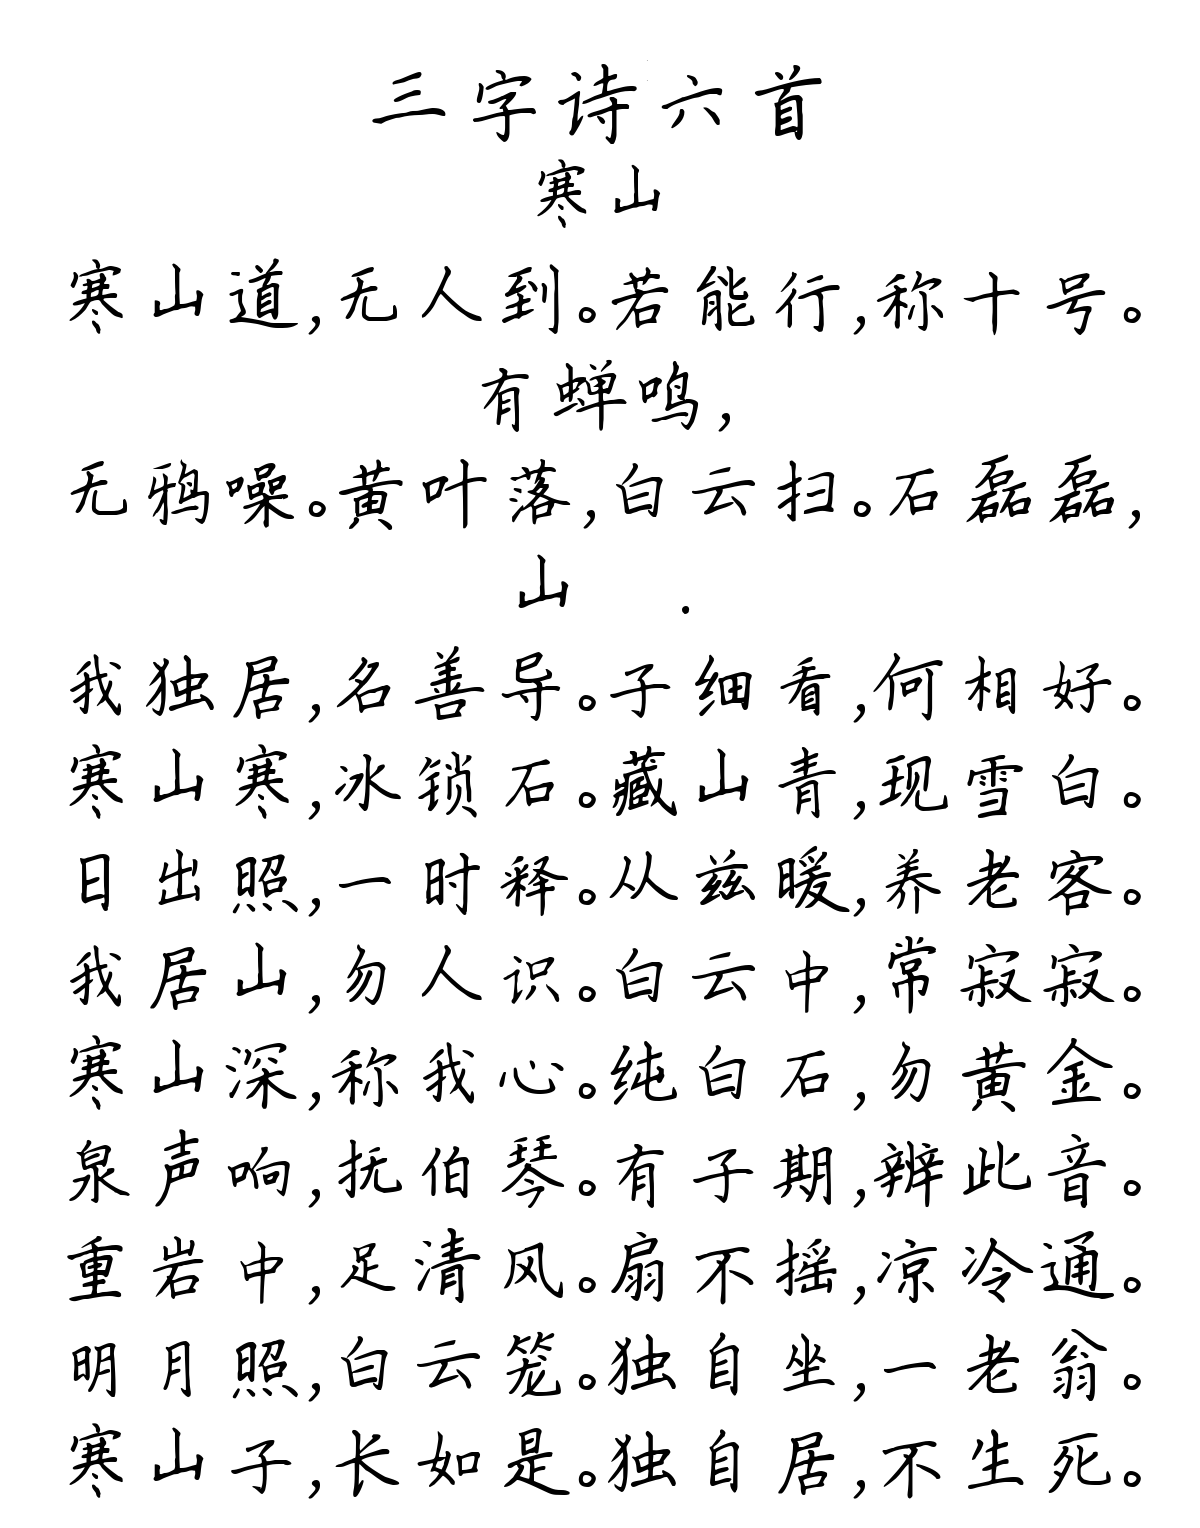 三字诗六首
寒山
寒山道,无人到。若能行,称十号。
有蝉鸣,
无鸦噪。黄叶落,白云扫。石磊磊,
山 .
我独居,名善导。子细看,何相好。
寒山寒,冰锁石。藏山青,现雪白。
日出照,一时释。从兹暖,养老客。
我居山,勿人识。白云中,常寂寂。
寒山深,称我心。纯白石,勿黄金。
泉声响,抚伯琴。有子期,辨此音。
重岩中,足清风。扇不摇,凉冷通。
明月照,白云笼。独自坐,一老翁。
寒山子,长如是。独自居,不生死。